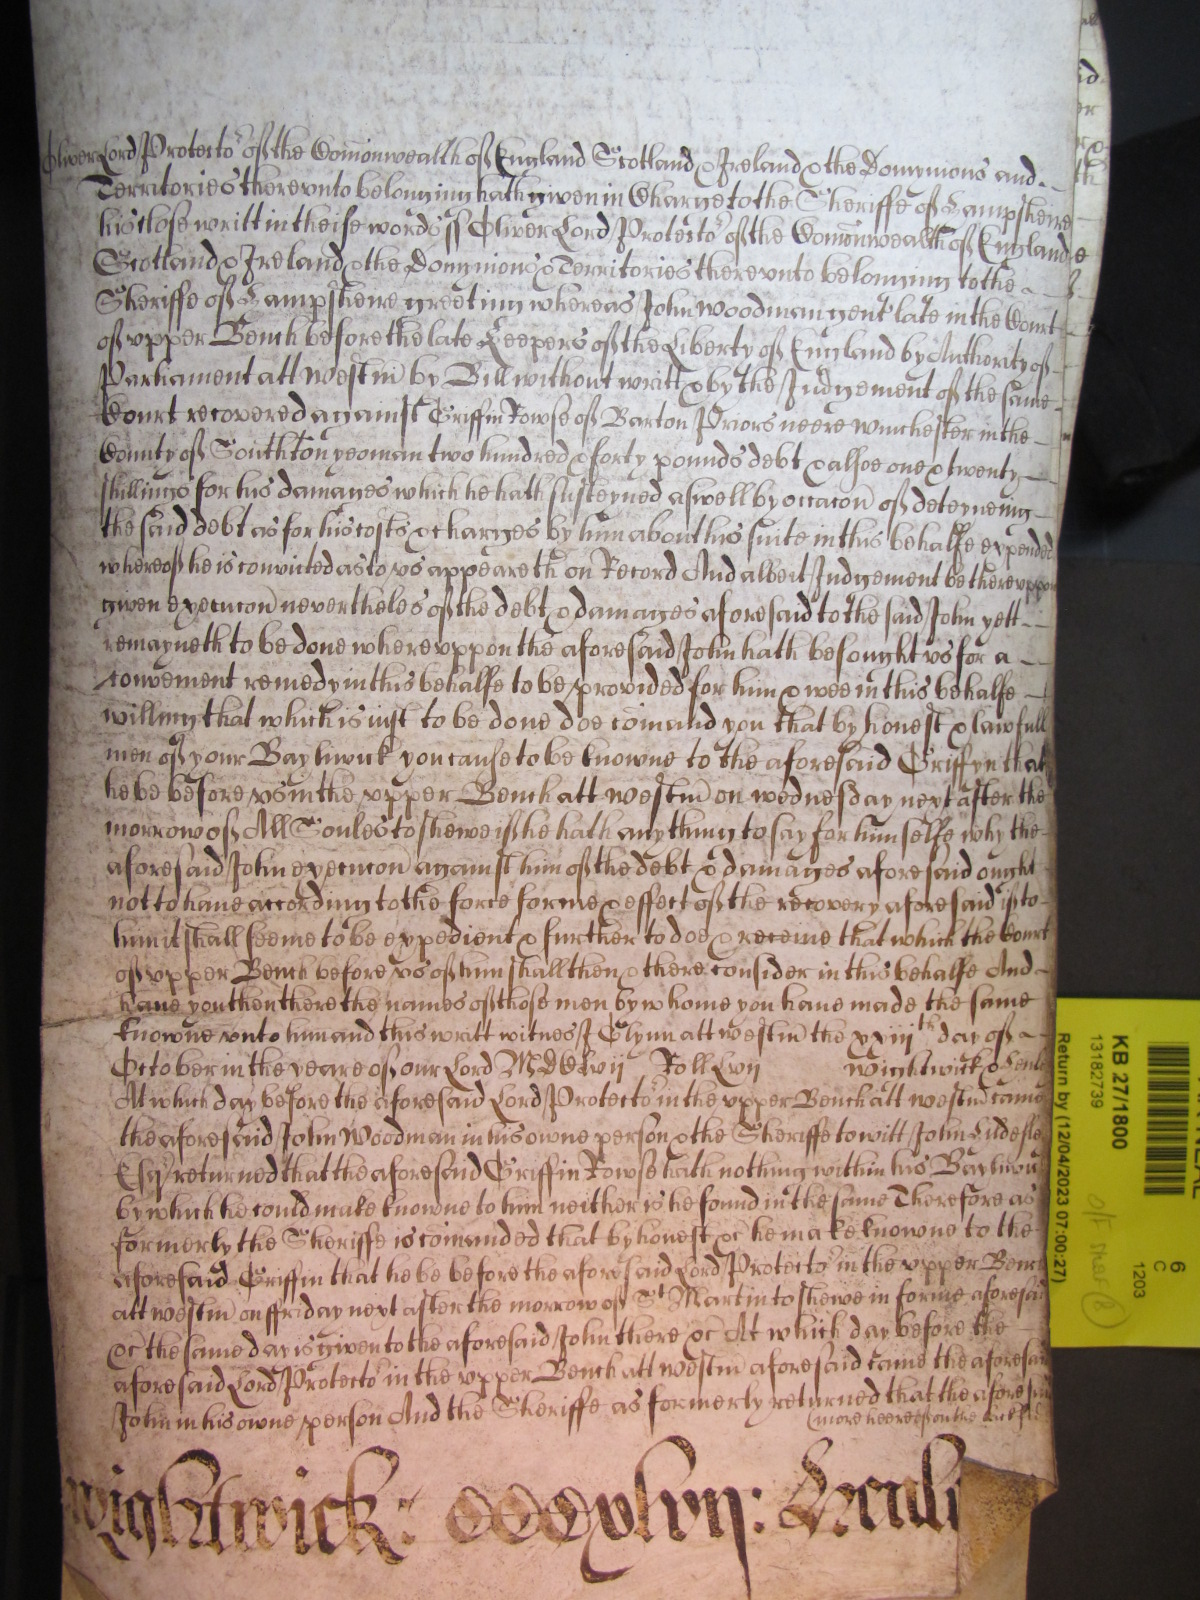 Oliver Lord Protector of the Comonwealth of England Scotland & Ireland & the Domynions and
Territories thereunto belonging hath given in Charge to the Sheriffe of Hampsheire
his close writt in theise words ss Oliver Lord Protector of the Comonwealth of England
Scotland & Ireland & the Domynions & Territories thereunto belonging to the
Sheriffe of Hampsheire greeting whereas John Woodman gent late in the Court
of upper Bench before the late Keepers of the Liberty of England by Authority of
Parliament att Westm by Bill without writt & by the Judgement of the same
Court recovered against Griffin Rowse of Barton Priors neere Winchester in the
County of Southton yeoman two hundred & forty pounds debt & alsoe one & twenty
shillings for his damages which he hath susteyned aswell by occacon of deteyneing
the said debt as for his costs & charges by him about his suite in this behalfe expended
whereof he is convicted as to us appeareth on Record And albeit Judgement be thereuppon
given execucon nevertheles of the debt & damages aforesaid to the said John yett
remayneth to be done whereuppon the aforesaid John hath besought us for a
convenient remedy in this behalfe to be provided for him & wee in this behalfe
willing that which is just to be done doe comand you that by honest & lawfull
men of your Baylywick you cause to be knowne to the aforesaid Griffyn that
he be before us in the upper Bench att Westm on wednesday next after the
morrow of All Soules to shewe if he hath any thing to say for himselfe why the
aforesaid John execucon against him of the debt & damages aforesaid ought
not to have according to the force forme & effect of the recovery aforesaid if to
him it shall seeme to be expedient & further to doe & receive that which the Court
of upper Bench before us of him shall then & there consider in this behalfe And
have you then there the names of those men by whome you have made the same
knowne unto him and this writt witnes J Glynn att Westm the xxiijth day of
October in the yeare of our Lord MDClvij Roll lvij Wightwick &
At which day before the aforesaid Lord Protector in the upper Bench att Westm came
the aforesaid John Woodman in his owne person & the Sheriffe to witt John
Esq returned that the aforesaid Griffin Rowse hath nothing within his Baylywick
by which he could make knowne to him neither is he found in the same Therefore as
formerly the Sheriffe is comanded that by honest &c he make knowne to the
aforesaid Griffin that he be before the aforesaid Lord Protector in the upper Bench
att Westm on ffriday next after the morrow of St Martin to shewe in forme aforesaid
&c the same day is given to the aforesaid John there &c At which day before the
aforesaid Lord Protector in the upper Bench att Westm aforesaid came the aforesaid
John in his owne person And the Sheriffe as formerly returned that the aforesaid
(more heereof on the
Wightwick: CCCxlvij:
KB 27/1800
13182739
Return by (12/04/2023 07:00:27)
6
C
1203